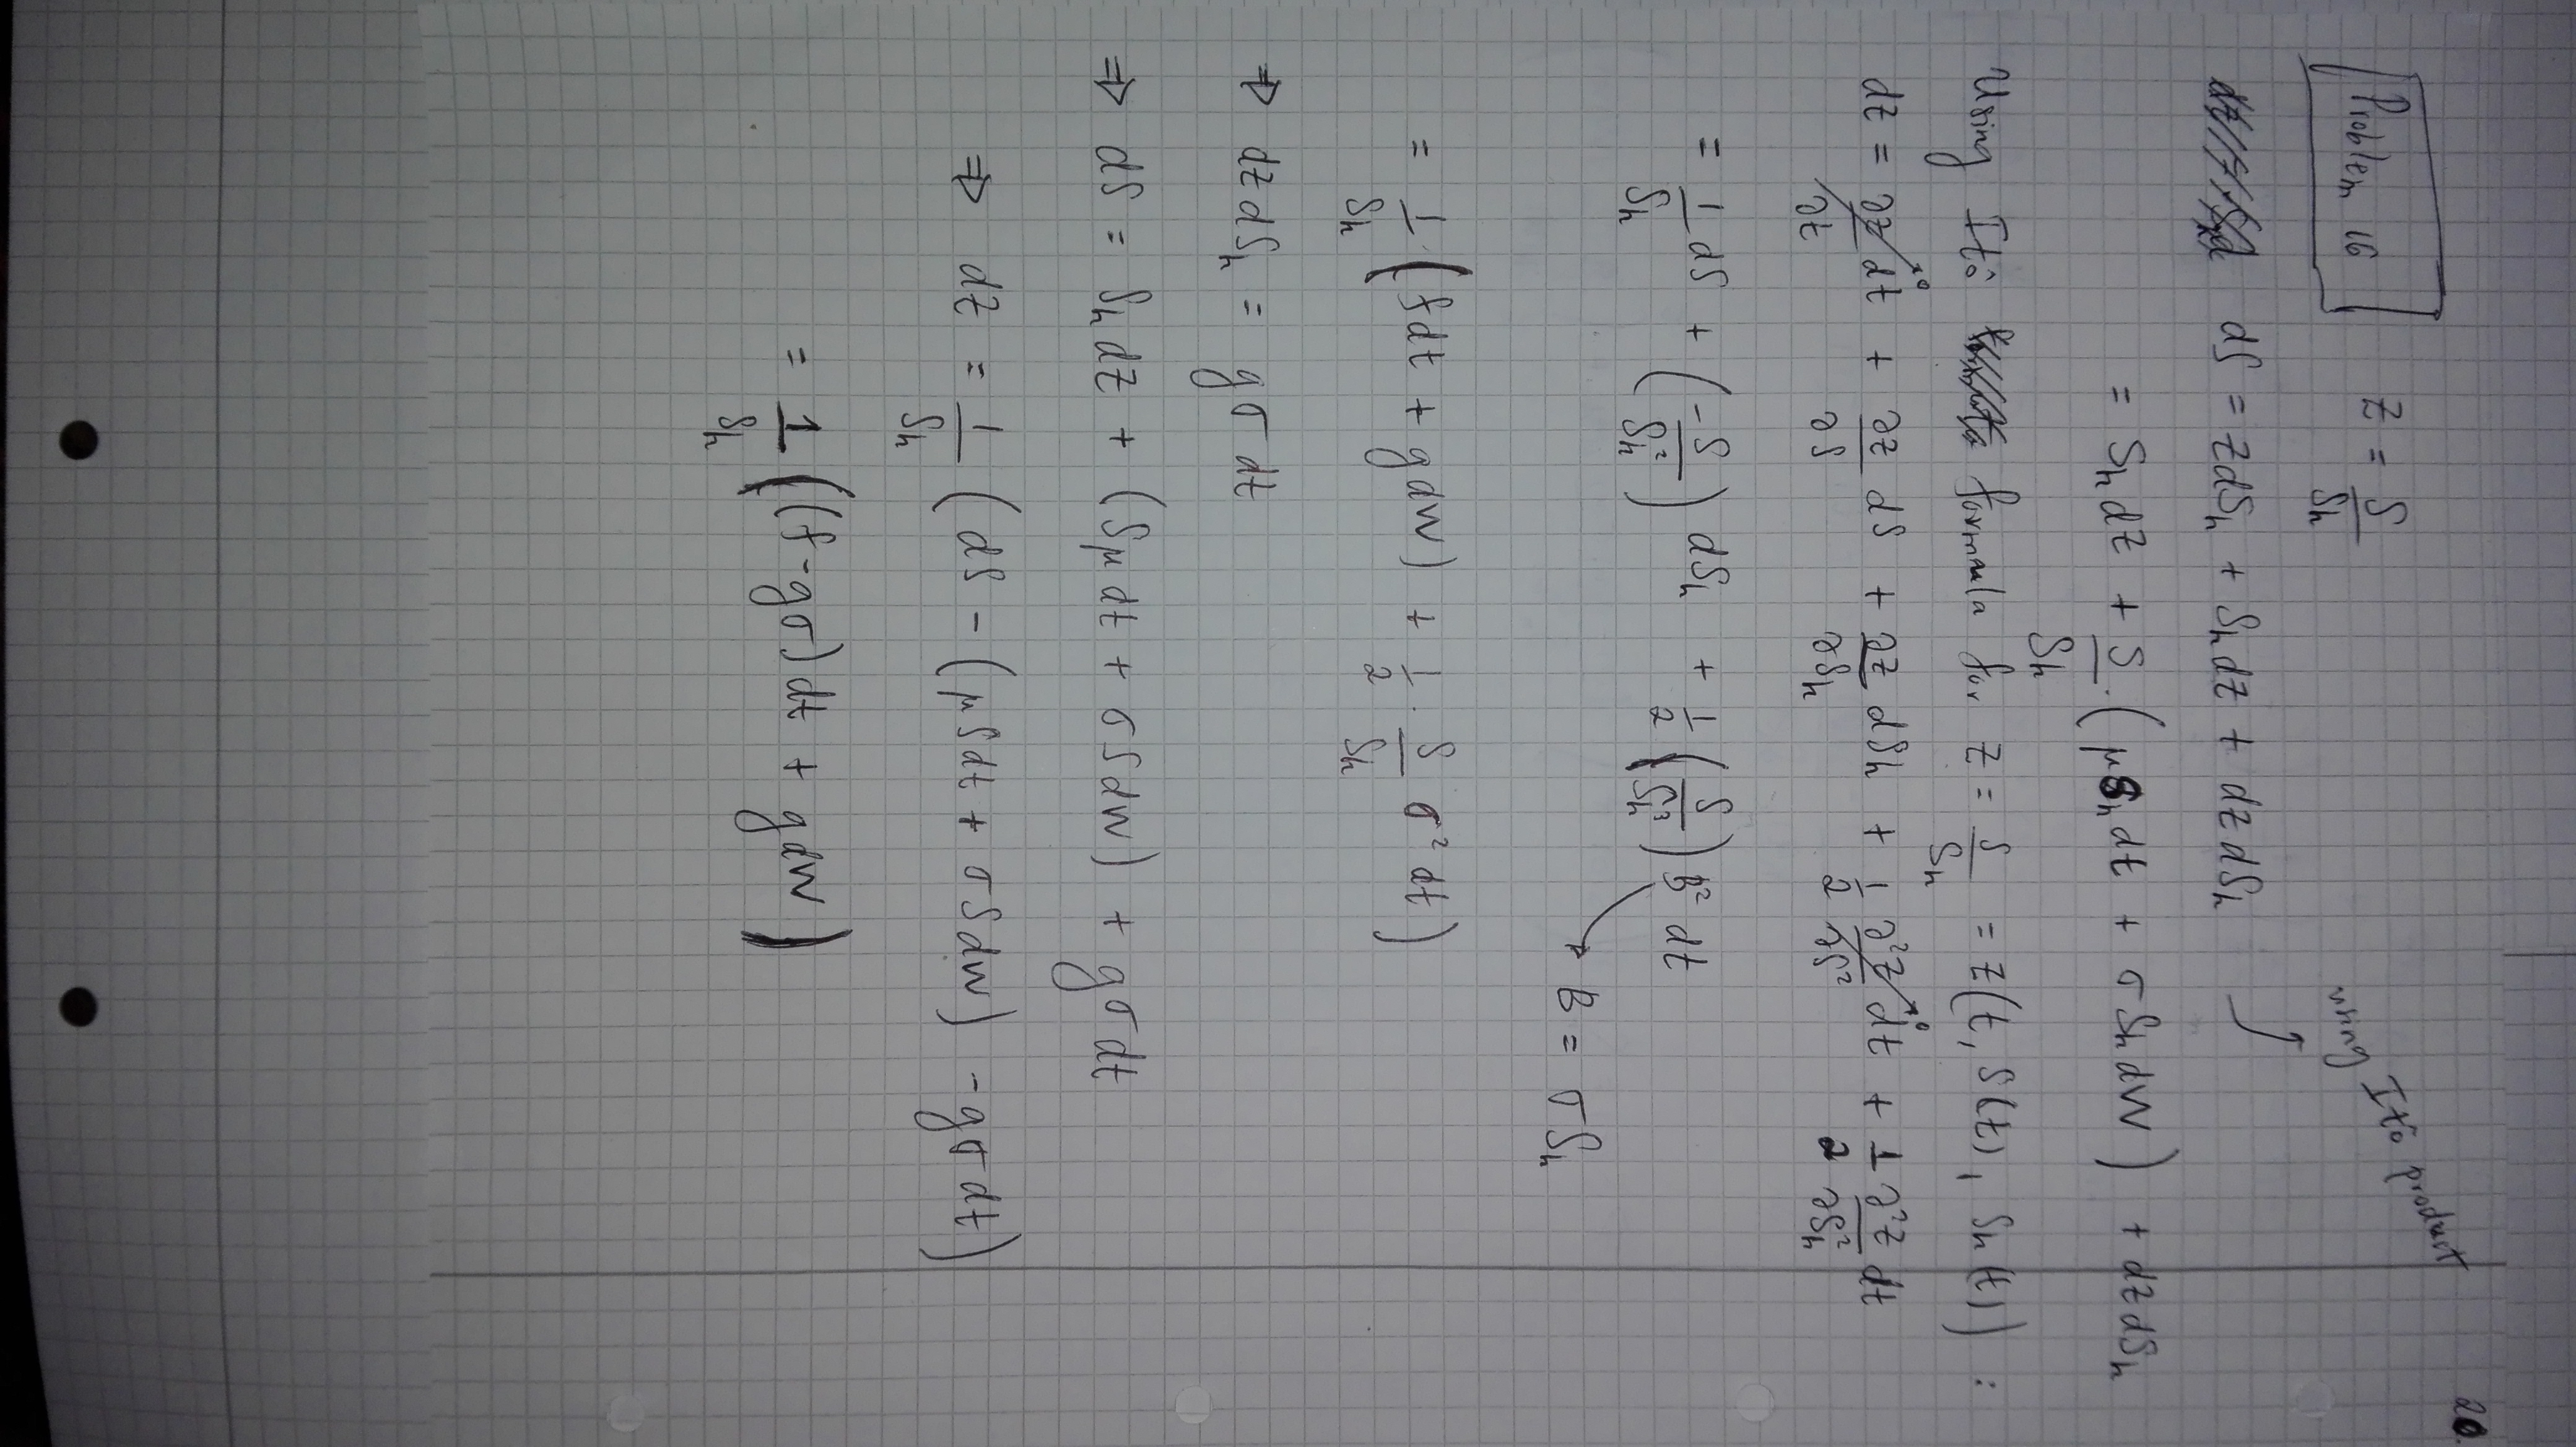 20.
Problem 16
z = S/Sₕ
using Itô product
dS = z dSₕ + Sₕ dz + dz dSₕ
= Sₕ dz + S/Sₕ · (μ Sₕ dt + σ Sₕ dW) + dz dSₕ
Using Itô formula for z = S/Sₕ = z(t, S(t), Sₕ(t)) :
dz = ∂z/∂t dt → 0 + ∂z/∂S dS + ∂z/∂Sₕ dSₕ + 1/2 ∂²z/∂S² dt → 0 + 1/2 ∂²z/∂Sₕ² dt
= 1/Sₕ dS + (- S/Sₕ²) dSₕ + 1/2 (S/Sₕ³) b² dt
→ B = σ Sₕ
= 1/Sₕ · (f dt + g dW) + 1/2 · S/Sₕ σ² dt)
⇒ dz dSₕ = g σ dt
⇒ dS = Sₕ dz + (S μ dt + σ S dW) + g σ dt
⇒ dz = 1/Sₕ (dS - (μ S dt + σ S dW) - g σ dt)
= 1/Sₕ ((f - g σ) dt + g dW)